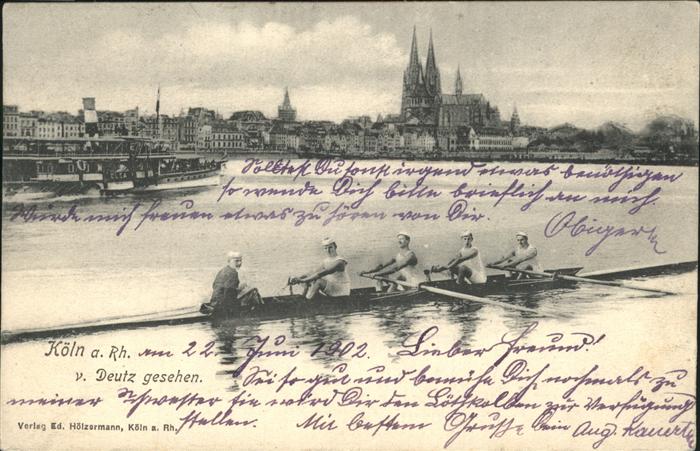 Solltest Du sonst irgend etwas benöthigen
so wende Dich bitte brieflich an mich
Würde mich freuen etwas zu hören von Dir.
Obiger
Köln a. Rh. am 22. Juni 1902. Lieber Freund!
v. Deutz gesehen.
Sei so gut und bemühe Dich nochmals zu
meiner Schwester sie wird Dir den Löthkolben zur Verfügung
stellen. Mit bestem Gruss Dein Aug.
Verlag Ed. Hölzermann, Köln a. Rh.